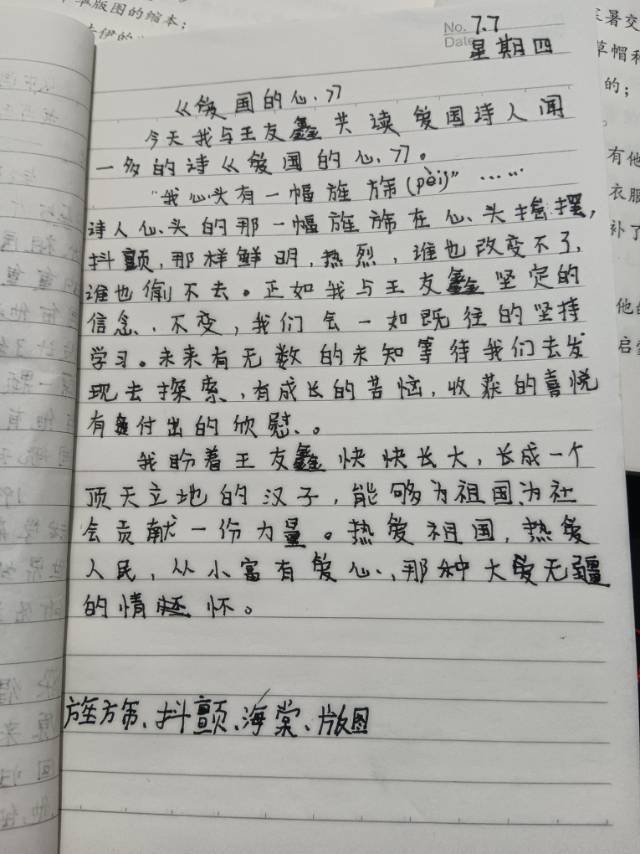 草版图的缩本；
No. 7.7
Date 星期四
《爱国的心》
今天我与王友鑫共读爱国诗人闻
一多的诗《爱国的心》。
"我心头有一幅旌旆(pèi)"……
诗人心头的那一幅旌旆在心头摇摆，
抖颤，那样鲜明，热烈，谁也改变不了，
谁也偷不去。正如我与王友鑫坚定的
信念、不变，我们会一如既往的坚持
学习。未来有无数的未知等待我们去发
现去探索，有成长的苦恼，收获的喜悦
有付出的欣慰、。
我盼着王友鑫快快长大，长成一个
顶天立地的汉子，能够为祖国为社
会贡献一份力量。热爱祖国，热爱
人民，从小富有爱心，那种大爱无疆
的情怀。
旌旆、抖颤、海棠、版图
暑交
草帽和
的；
。
有他
衣服
补了
他的
启